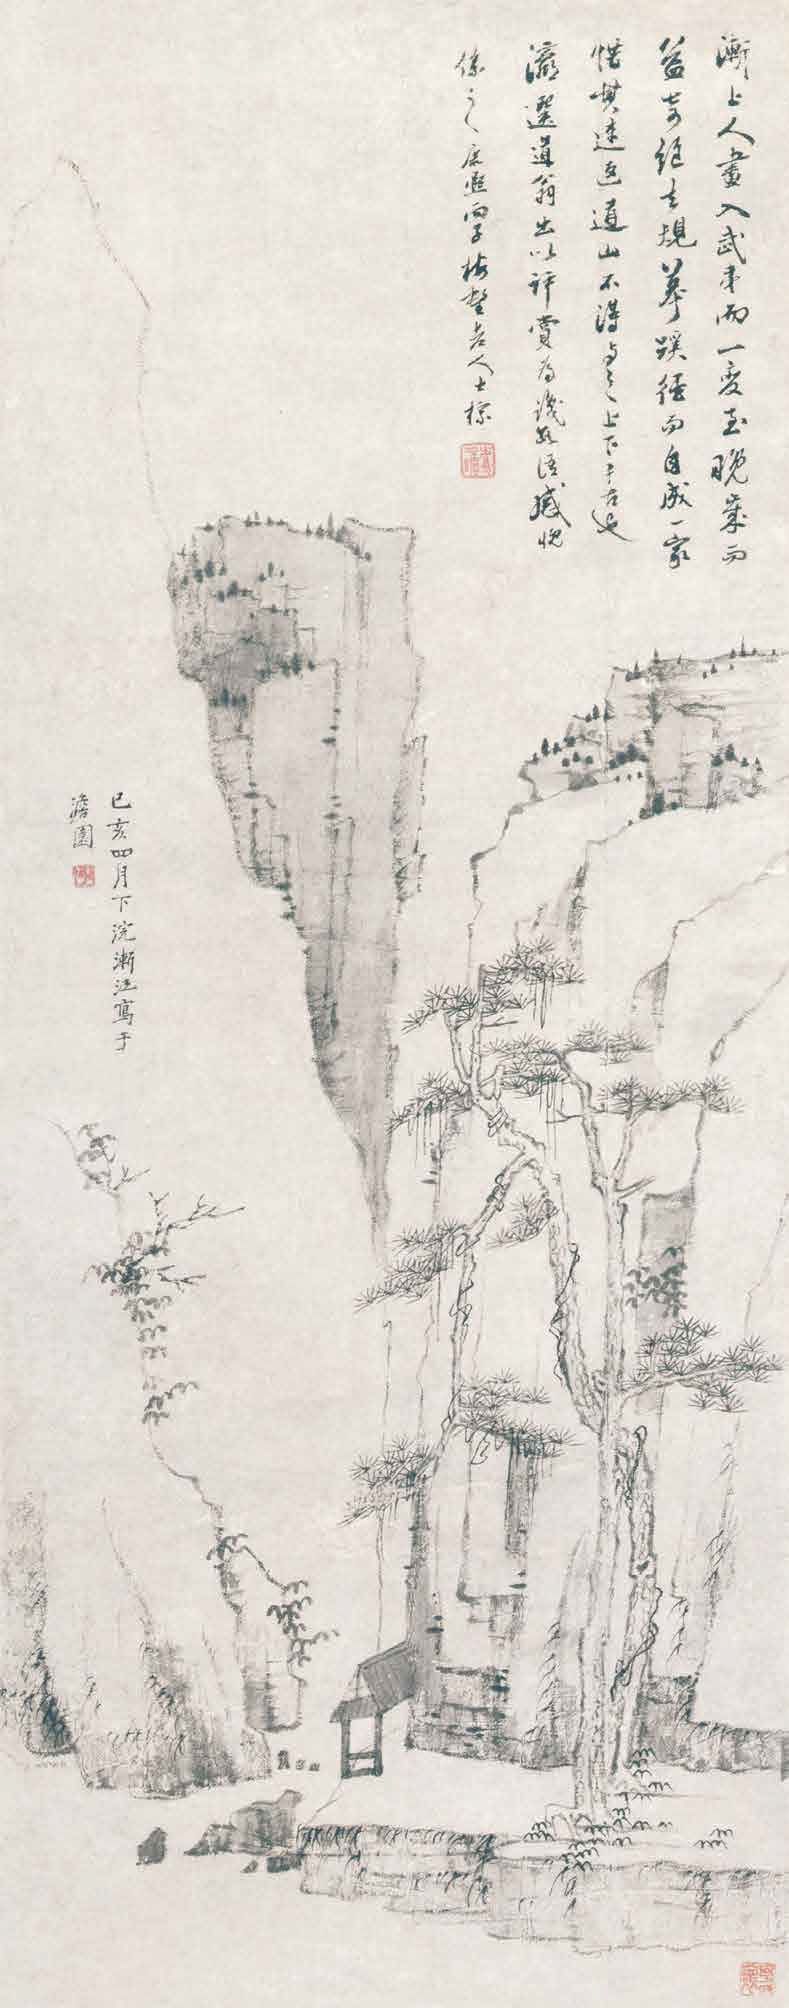 漸上人畫入武夷而一變至晚歲而
益奇絕去規摹蹊徑而自成一家
惜其速返道山不得與之上下千古也
瀛選道翁出以評賞為識數語感愧
係之康熙丙子梅壑老人士標
己亥四月下浣漸江寫于
澹園